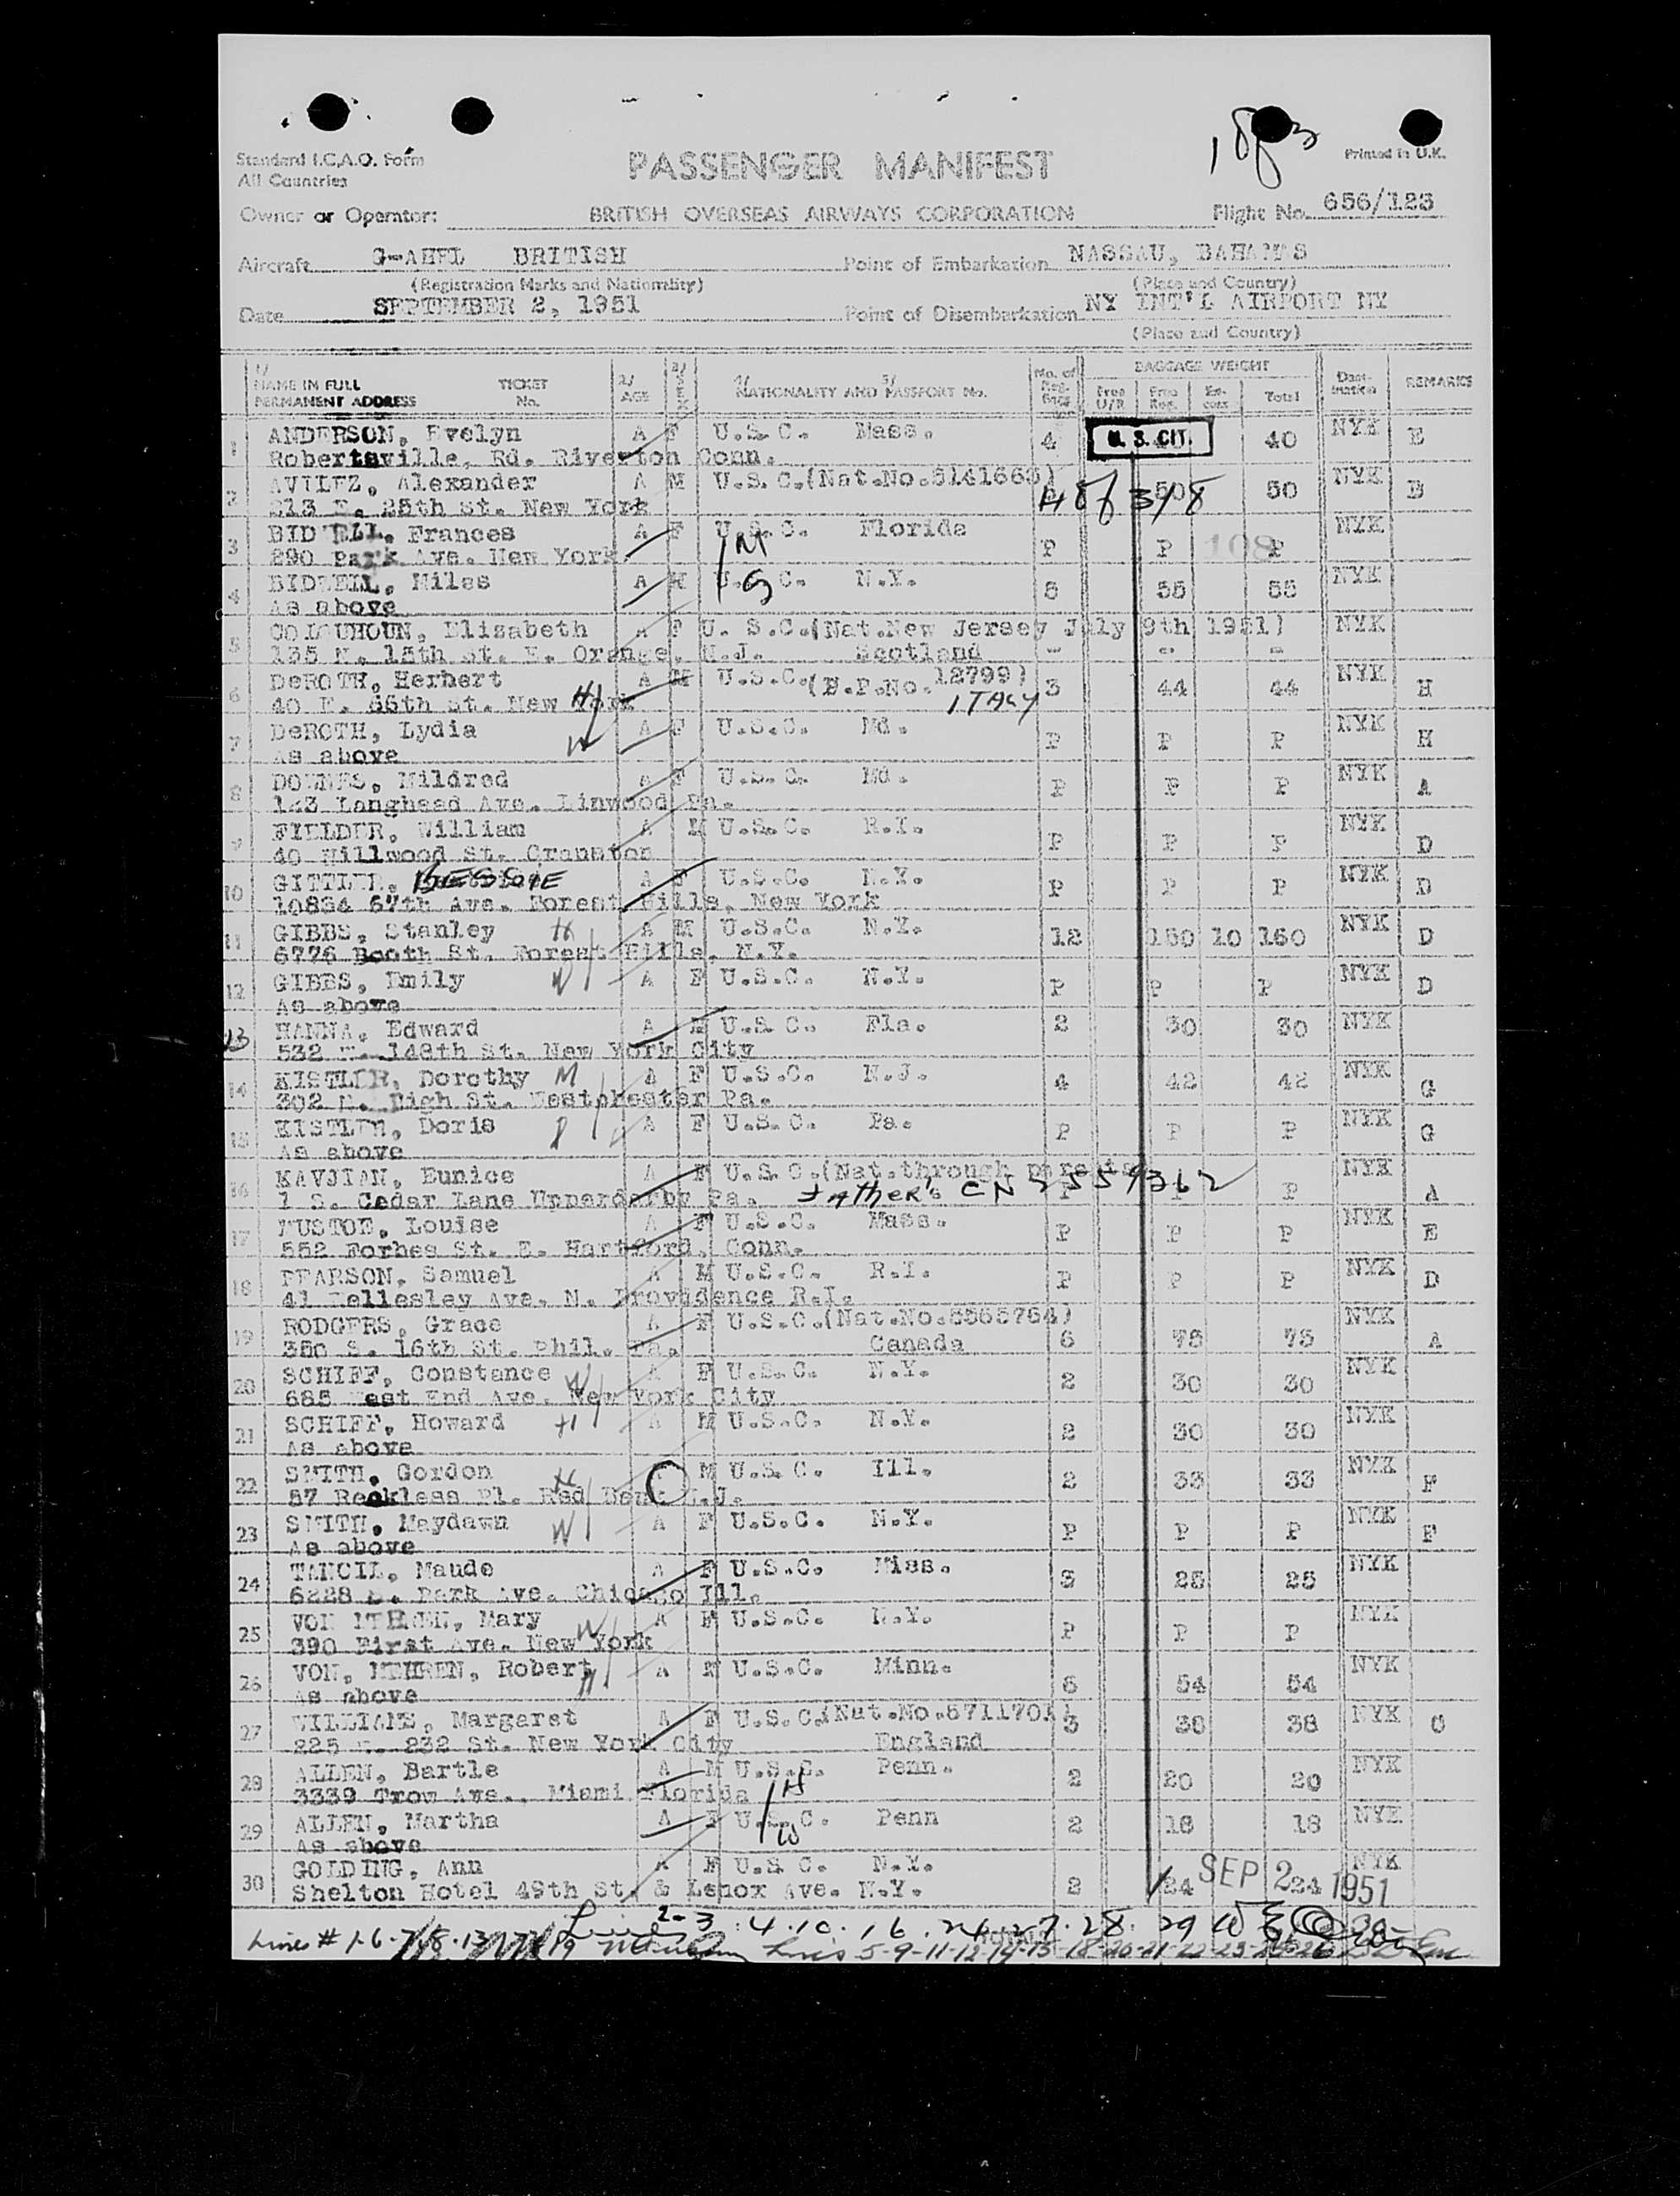 1 of 3
Standard I.C.A.O. Form
All Countries
PASSENGER MANIFEST
Printed in U.K.
Owner or Operator: BRITISH OVERSEAS AIRWAYS CORPORATION Flight No. 656/123
Aircraft BRITISH Point of Embarkation NASSAU, BAHAMAS
(Registration Marks and Nationality) (Place and Country)
Date SEPTEMBER 2, 1951 Point of Disembarkation NY INT'L AIRPORT NY
(Place and Country)
1/ NAME IN FULL TICKET 2/ AGE 3/ SEX 4/ NATIONALITY AND 5/ PASSPORT No. No. of Reg. Bags BAGGAGE WEIGHT Destination REMARKS
PERMANENT ADDRESS No. Free U/R Free Reg. Excess Total
1 ANDERSON, Evelyn A F U.S.C. Mass. 4 U. S. CIT. 40 NYK E
Robertsville, Rd. Riverton Conn.
2 AVILEZ, Alexander A M U.S.C.(Nat.No. 50 50 NYK
213 E. 25th St. New York
3 BIDWELL, Frances A F U.S.C. Florida P P P NYK
290 Park Ave. New York M
4 BIDWELL, Miles A M U.S.C. N.Y. 55 55 NYK
As above S
5 COLQUHOUN, Elizabeth A F U. S.C.(Nat.New Jersey July 9th 1951) NYK
135 N. 15th St. E. Orange, N.J. Scotland - - -
6 DeROTH, Herbert A M U.S.C.(B.P.No.12799) 3 44 44 NYK H
40 E. 66th St. New York H ITALY
7 DeROTH, Lydia A F U.S.C. Md. P P P NYK H
As above W
8 DOWNES, Mildred A F U.S.C. Md. P P P NYK A
Ave. Linwood Pa.
9 FIELDER, William A M U.S.C. R.I. P P P NYK D
40 Hillwood St. Cranston
10 GITTLER, BESSIE A F U.S.C. N.Y. P P P NYK D
10834 67th Ave. Forest Hills, New York
11 GIBBS, Stanley H A M U.S.C. N.Y. 12 150 10 160 NYK D
6776 Booth St. Forest Hills, N.Y.
12 GIBBS, Emily W A F U.S.C. N.Y. P P P NYK D
As above
13 HANNA, Edward A M U.S.C. Fla. 2 30 30 NYK
532 E. 148th St. New York City
14 KISTLER, Dorothy M A F U.S.C. N.J. 4 42 42 NYK G
302 N. High St. Westchester Pa.
15 KISTLER, Doris A F U.S.C. Pa. P P P NYK G
As above
16 KAVJIAN, Eunice A F U.S.C.(Nat.through parents P NYK A
1 S. Cedar Lane Upperdarby Pa. Father's CN 2559362
17 MUSTOE, Louise A F U.S.C. Mass. P P P NYK E
552 Forbes St. E. Hartford, Conn.
18 PEARSON, Samuel A M U.S.C. R.I. P P P NYK D
41 Wellesley Ave. N. Providence R.I.
19 RODGERS, Grace A F U.S.C.(Nat.No. 6 75 75 NYK A
S. 16th St. Phil. Pa. Canada
20 SCHIFF, Constance W A F U.S.C. N.Y. 2 30 30 NYK
685 West End Ave. New York City
21 SCHIFF, Howard H A M U.S.C. N.Y. 2 30 30 NYK
As above
22 SMITH, Gordon H A M U.S.C. Ill. 2 33 33 NYK F
57 Reckless Pl. Red Bank N.J.
23 SMITH, Maydawn W A F U.S.C. N.Y. P P P NYK F
As above
24 TANCIL, Maude A F U.S.C. Miss. 3 25 25 NYK
6228 S. Park Ave. Chicago Ill.
25 VON MEHREN, Mary W A F U.S.C. N.Y. P P P NYK
390 First Ave. New York
26 VON, MEHREN, Robert H A M U.S.C. Minn. 6 54 54 NYK
As above
27 WILLIAMS, Margaret A F U.S.C.(Nat.No. 3 38 38 NYK
225 E. 232 St. New York City England
28 ALLEN, Bartle A M U.S.C. Penn. 2 20 20 NYK
3339 Trow Ave., Miami Florida H
29 ALLEN, Martha A F U.S.C. Penn 2 18 18 NYK
As above W
30 GOLDING, Ann A F U.S.C. N.Y. 2 24 24 NYK
Shelton Hotel 49th St. & Lenox Ave. N.Y. SEP 2 1951
2-3 4.10.16.24.27.28.29
Lines 5-9-11-12-14-15-18-20-21-22-23